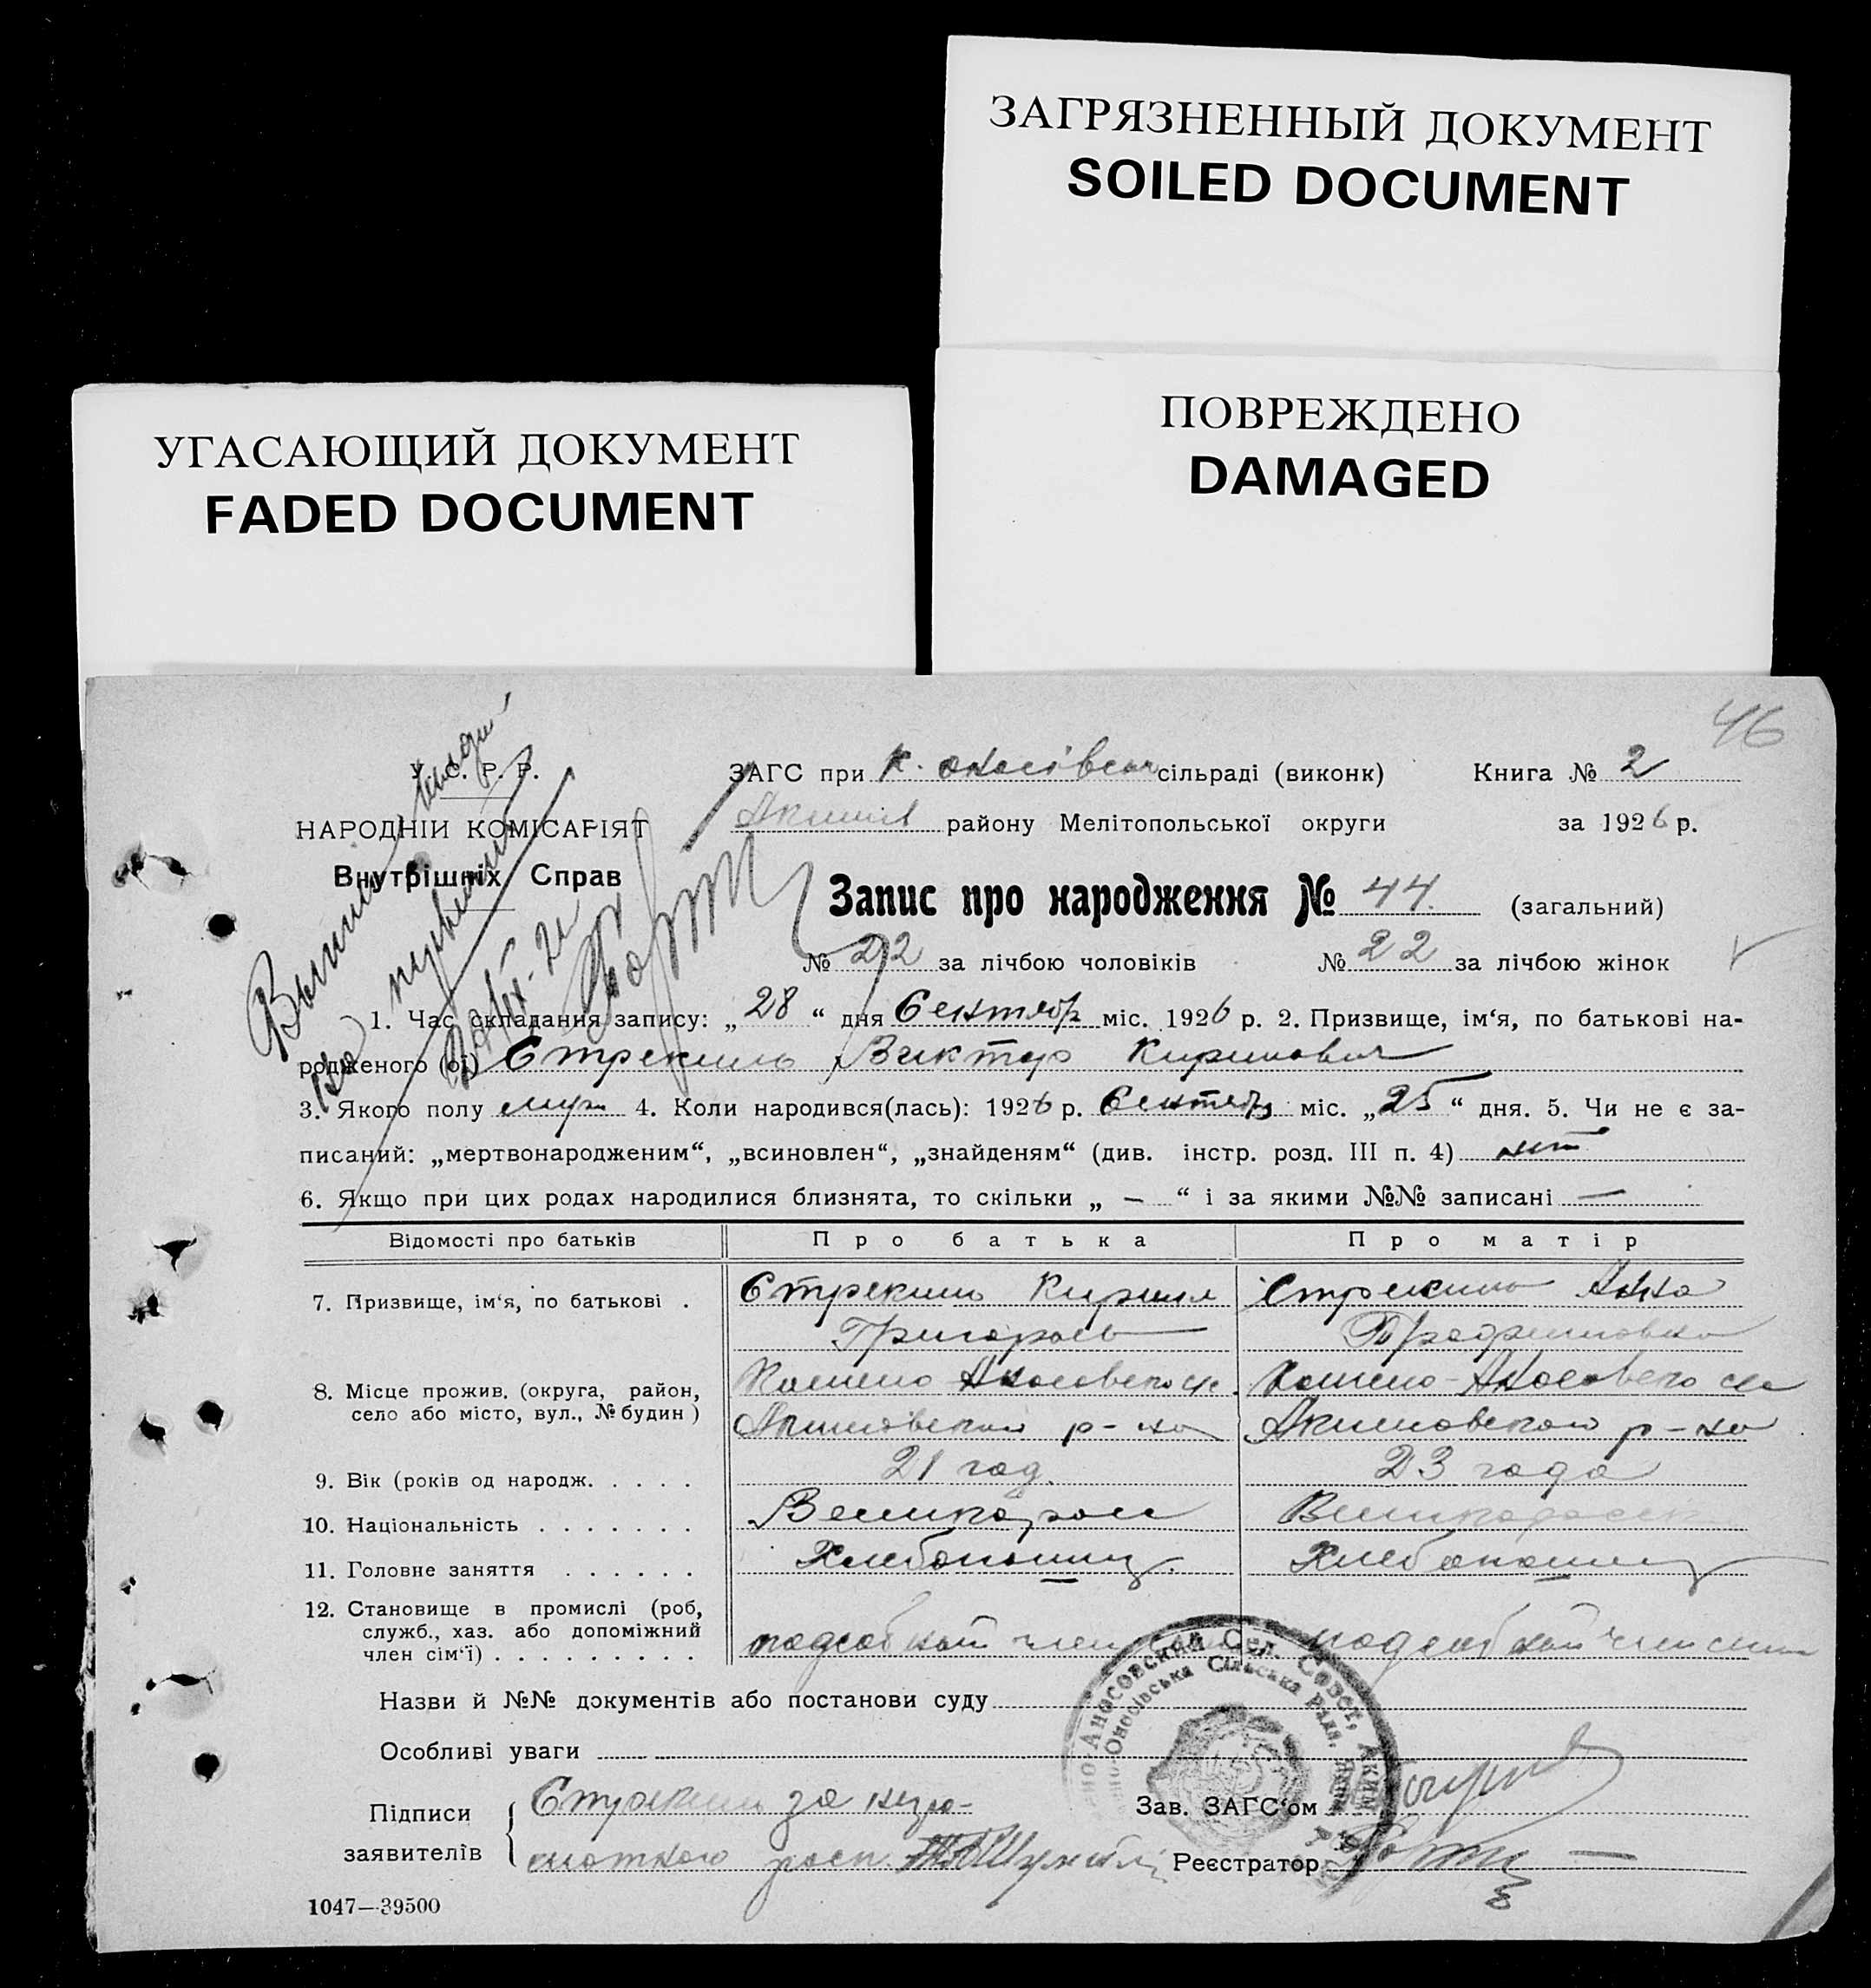 ЗАГРЯЗНЕННЫЙ ДОКУМЕНТ
SOILED DOCUMENT
ПОВРЕЖДЕНО
DAMAGED
УГАСАЮЩИЙ ДОКУМЕНТ
FADED DOCUMENT
46
У. С. Р. Р.
НАРОДНІЙ КОМІСАРІЯТ
Внутрішніх Справ
ЗАГС при К. сільраді (виконк) Книга № 2
Аким району Мелітопольської округи за 1926 р.
Запис про народження № 44. (загальний)
№ 22 за лічбою чоловіків № 22 за лічбою жінок
1. Час складання запису: „28“ дня Сентябр міс. 1926 р. 2. Призвище, ім‘я, по батькові на-
родженого (ої) Стрекиль Виктор Кирилович
3. Якого полу муж 4. Коли народився(лась): 1926 р. Сентябр міс. „25“ дня. 5. Чи не є за-
писаний: „мертвонародженим“, „всиновлен“, „знайденям“ (див. інстр. розд. III п. 4) нет
6. Якщо при цих родах народилися близнята, то скільки „ – “ і за якими №№ записані —
Відомості про батьків Про батька Про матір
7. Призвище, ім‘я, по батькові . Стрекиль Кирилл Стрекиль Анна
Григорьев Трофимовна
8. Місце прожив. (округа, район, село або місто, вул., № будин) Аносовского с. Аносовского с
Акимовского р-на Акимовского р-на
9. Вік (років од народж. . . . . 21 год. 23 года
10. Національність . . . . . . . Великорос Великоросск
11. Головне заняття . . . . . . Хлебопашец. Хлебопашец
12. Становище в промислі (роб, служб., хаз. або допоміжний член сім‘ї) . . . . . . . . . подсобный член подсобный член семьи
Назви й №№ документів або постанови суду
Особливі уваги
Аносовский Сел. Совет, Аким
Оносівська Сільська Рада,
Підписи заявителів Стрекиль за негра-
мотного расп.
Зав. ЗАГС‘ом
Реєстратор
1047—39500